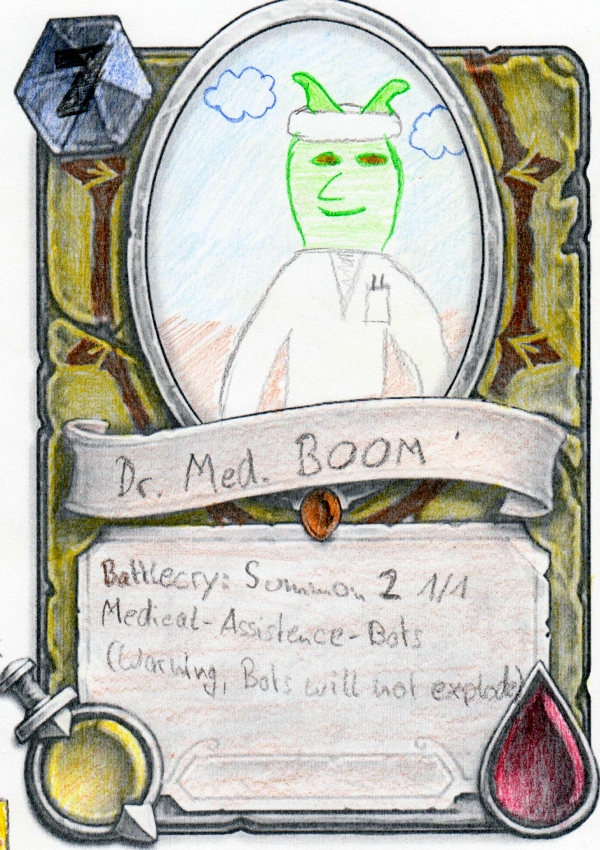 7
Dr. Med. BOOM
Battlecry: Summon 2 1/1
Medical-Assistence-Bots
(Warning, Bots will not explode)